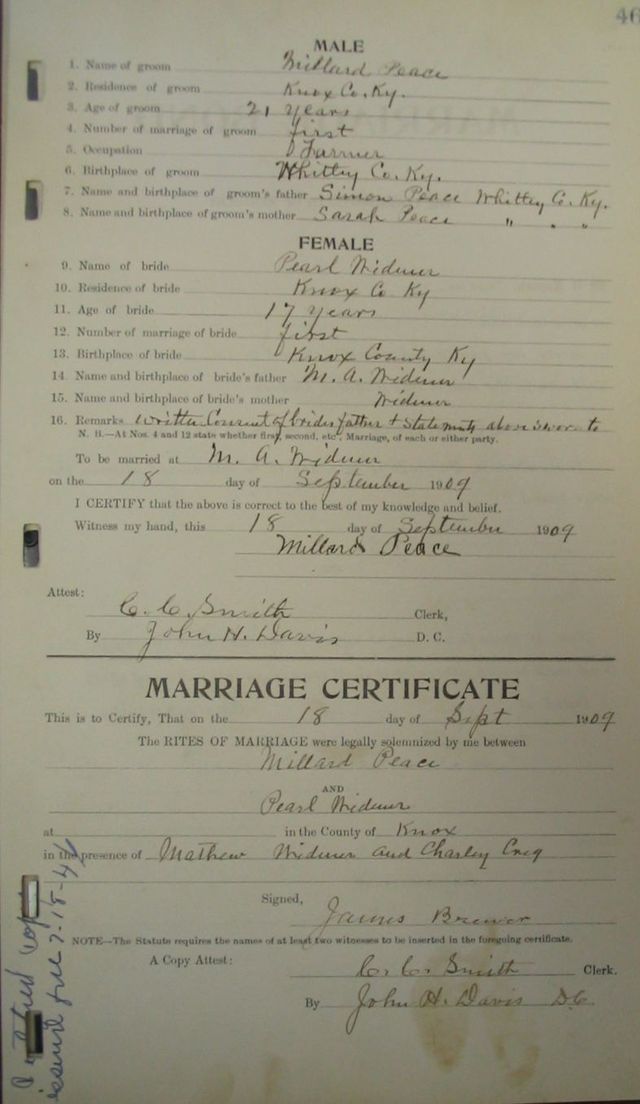 46
MALE
1. Name of groom Millard Peace
2. Residence of groom Knox Co. Ky.
3. Age of groom 21 years
4. Number of marriage of groom first
5. Occupation Farmer
6. Birthplace of groom Whitley Co. Ky.
7. Name and birthplace of groom's father Simon Peace Whitley Co. Ky.
8. Name and birthplace of groom's mother Sarah Peace " " "
FEMALE
9. Name of bride Pearl Widener
10. Residence of bride Knox Co Ky
11. Age of bride 17 years
12. Number of marriage of bride first
13. Birthplace of bride Knox County Ky
14. Name and birthplace of bride's father M. A. Widener
15. Name and birthplace of bride's mother Widener
16. Remarks written Consent of brides father + statements above sworn to
N. B.—At Nos. 4 and 12 state whether first, second, etc., Marriage, of each or either party.
To be married at M. A. Widener
on the 18 day of September 1909
I CERTIFY that the above is correct to the best of my knowledge and belief.
Witness my hand, this 18 day of September 1909
Millard Peace
Attest:
C. C. Smith Clerk,
By John H. Davis D. C.
MARRIAGE CERTIFICATE
This is to Certify, That on the 18 day of Sept 1909
The RITES OF MARRIAGE were legally solemnized by me between
Millard Peace
AND
Pearl Widener
at in the County of Knox
in the presence of Mathew Widener and Charley
Signed,
James Brewer
NOTE—The Statute requires the names of at least two witnesses to be inserted in the foregoing certificate.
A Copy Attest: C. C. Smith Clerk.
By John H. Davis D.C.
issued free 7-18-44